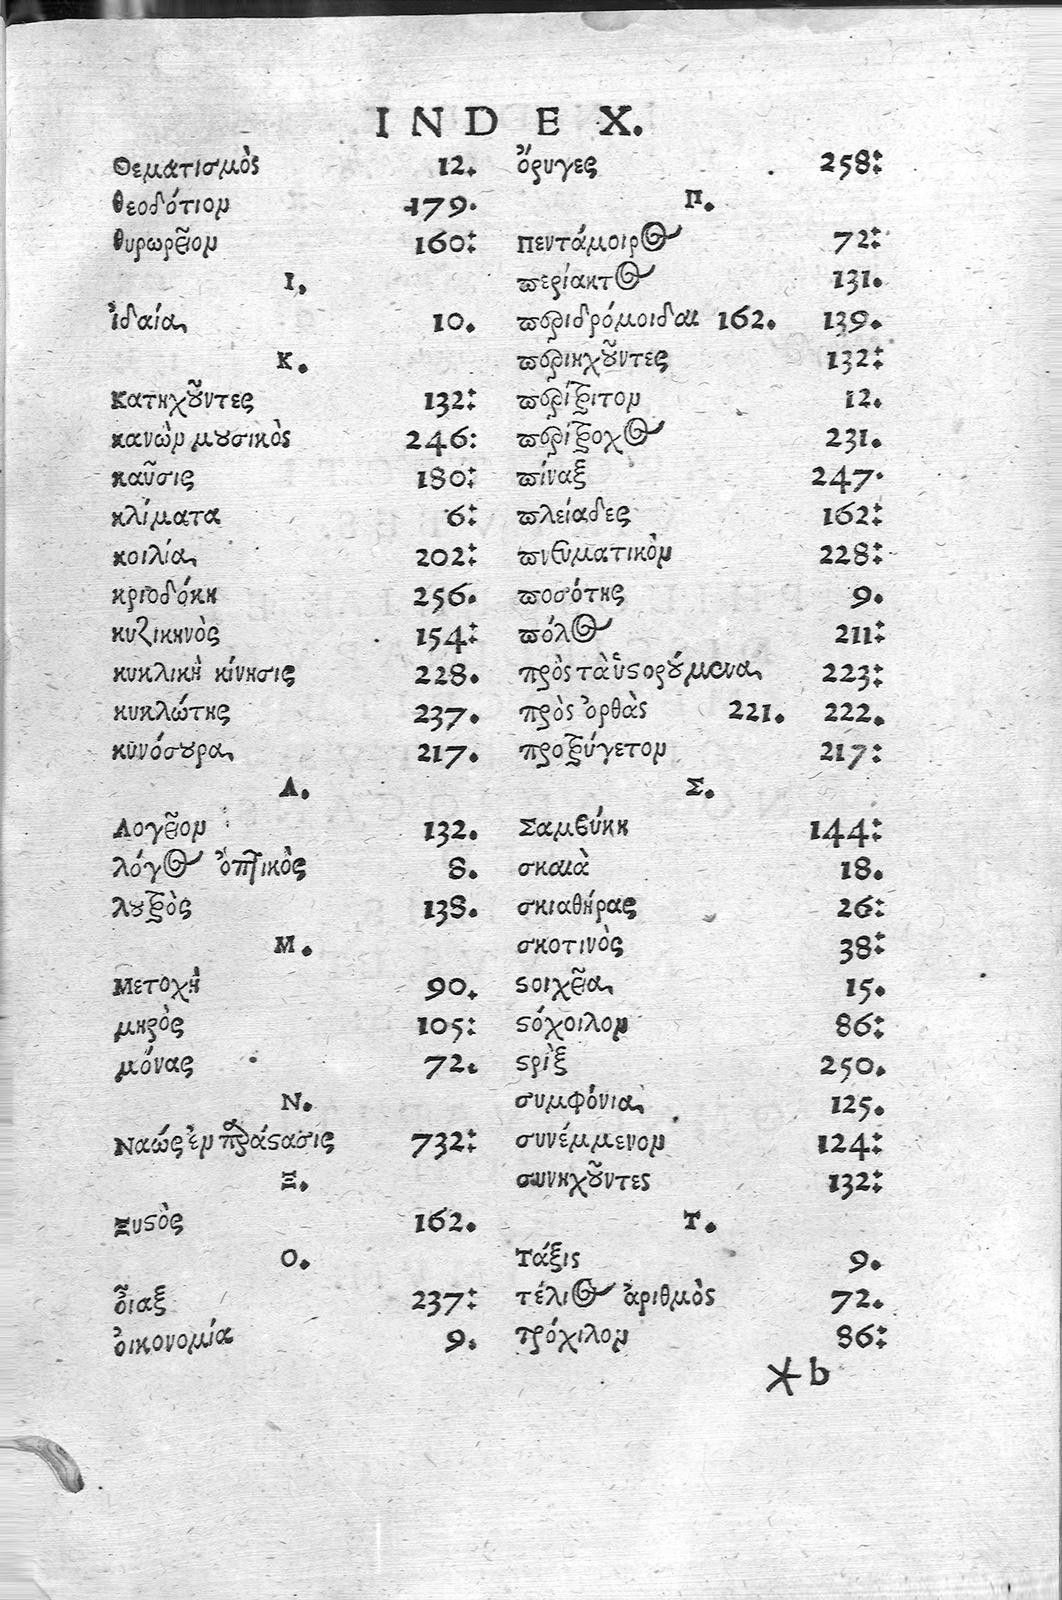 INDEX.
Θεματισμὸς 12.
θεοδότιον 179.
θυρωρεῖον 160:
Ι.
ἰδαία, 10.
Κ.
Κατηχοῦντες 132:
κανὼν μουσικὸς 246:
καῦσις 180:
κλίματα 6:
κοιλία, 202:
κριοδόκη 256.
κυζικηνὸς 154:
κυκλικὴ κίνησις 228.
κυκλώτης 237.
κυνόσουρα, 217.
Λ.
Λογεῖον 132.
λόγος ὀπτικὸς 8.
λουτρὸς 138.
Μ.
Μετοχὴ 90.
μηρὸς 105:
μόνας 72.
Ν.
Ναώς ἐν παράστασις 732:
Ξ.
Ξυστὸς 162.
Ο.
οἴαξ 237:
ὀικονομία 9.
ὄρυγες 258:
Π.
Πεντάμοιρος 72:
περίακτος 131.
περιδρόμοιδαι 162. 139.
περιηχοῦντες 132:
περίτριτον 12.
περίτροχος 231.
πίναξ 247.
πλειάδες 162:
πνευματικὸν 228:
ποσότης 9.
πόλος 211:
πρὸς τὰ ἱστορούμενα, 223:
πρὸς ὀρθὰς 221. 222.
προτρύγετον 217:
Σ.
Σαμβύκη 144:
σκαιὰ 18.
σκιαθήρας 26:
σκοτινὸς 38:
στοιχεῖα, 15.
στόχοιλον 86:
στρὶξ 250.
συμφόνια, 125.
συνέμμενον 124:
συνηχοῦντες 132:
Τ.
Τάξις 9.
τέλιος ἀριθμὸς 72.
τρόχιλον 86:
*b